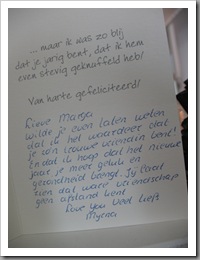 ... maar ik was zo blij
dat je jarig bent, dat ik hem
even stevig geknuffeld heb!
Van harte gefeliciteerd!
Lieve Marga
wilde je even laten weten
dat ik het waardeer dat
je m'n trouwe vriendin bent!
En dat ik hoop dat het nieuwe
jaar je meer geluk en
gezondheid brengt. Jij laat
zien dat ware vriendschap
geen afstand kent
Love you veel liefs
Myrna